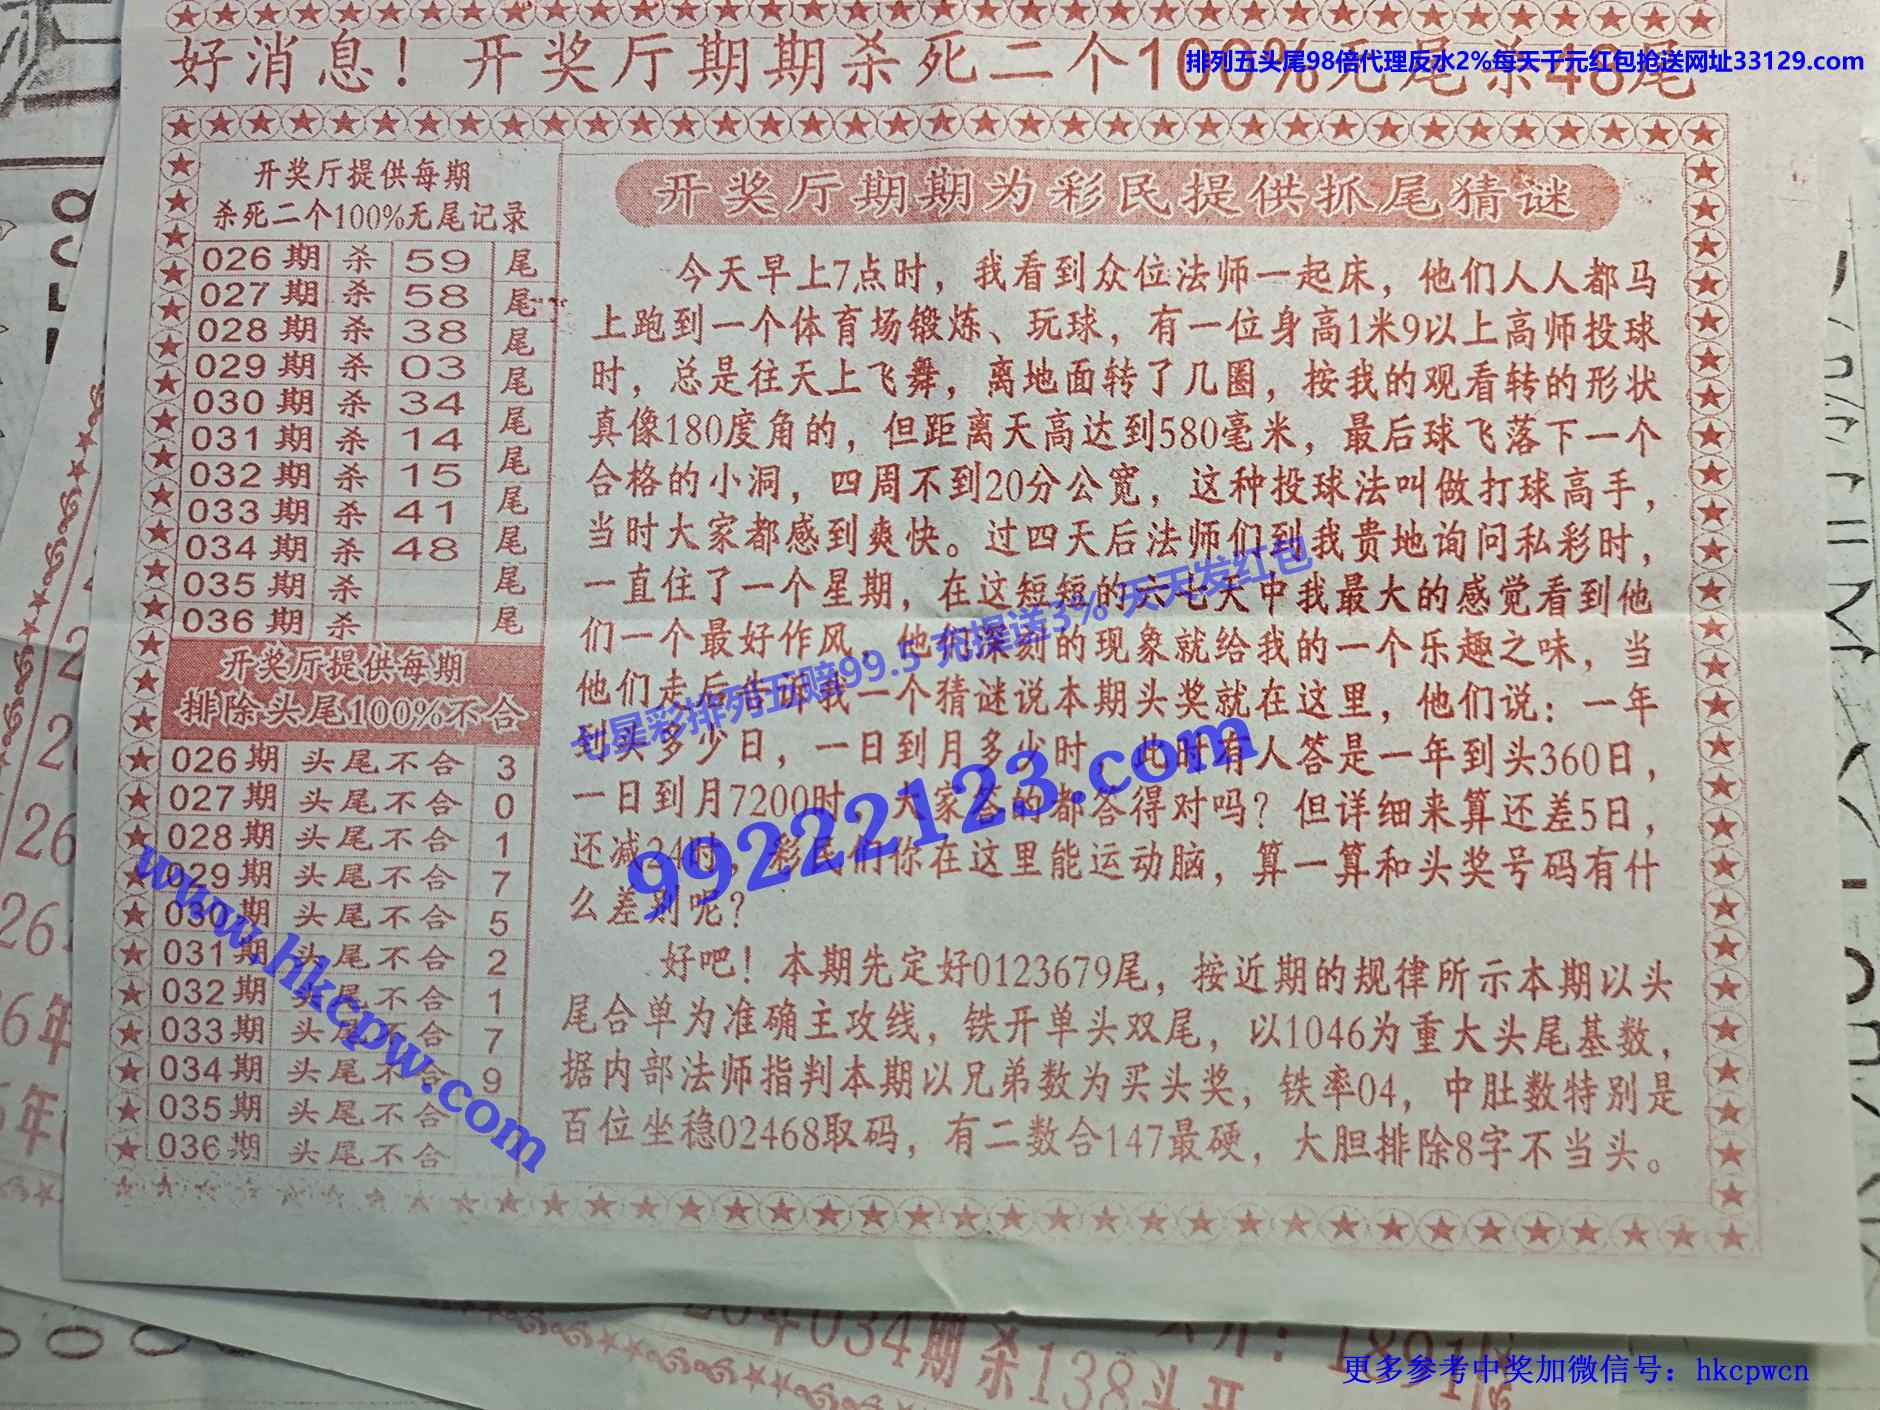 好消息！开奖厅期期杀死二个100%无尾杀48尾
排列五头尾98倍代理反水2%每天千元红包抢送网址33129.com
开奖厅提供每期
杀死二个100%无尾记录
026期 杀 59 尾
027期 杀 58 尾
028期 杀 38 尾
029期 杀 03 尾
030期 杀 34 尾
031期 杀 14 尾
032期 杀 15 尾
033期 杀 41 尾
034期 杀 48 尾
035期 杀 尾
036期 杀 尾
开奖厅提供每期
排除头尾100%不合
026期 头尾不合 3
027期 头尾不合 0
028期 头尾不合 1
029期 头尾不合 7
030期 头尾不合 5
031期 头尾不合 2
032期 头尾不合 1
033期 头尾不合 7
034期 头尾不合 9
035期 头尾不合
036期 头尾不合
开奖厅期期为彩民提供抓尾猜谜
今天早上7点时，我看到众位法师一起床，他们人人都马
上跑到一个体育场锻炼、玩球，有一位身高1米9以上高师投球
时，总是往天上飞舞，离地面转了几圈，按我的观看转的形状
真像180度角的，但距离天高达到580毫米，最后球飞落下一个
合格的小洞，四周不到20分公宽，这种投球法叫做打球高手，
当时大家都感到爽快。过四天后法师们到我贵地询问私彩时，
一直住了一个星期，在这短短的六七天中我最大的感觉看到他
们一个最好作风，他们深刻的现象就给我的一个乐趣之味，当
他们走后告诉我一个猜谜说本期头奖就在这里，他们说：一年
到头多少日，一日到月多少时，此时有人答是一年到头360日，
一日到月7200时，大家答的都答得对吗？但详细来算还差5日，
还减24时，彩民们你在这里能运动脑，算一算和头奖号码有什
么差别呢？
好吧！本期先定好0123679尾，按近期的规律所示本期以头
尾合单为准确主攻线，铁开单头双尾，以1046为重大头尾基数，
据内部法师指判本期以兄弟数为买头奖，铁率04，中肚数特别是
百位坐稳02468取码，有二数合147最硬，大胆排除8字不当头。
七星彩排列五赔99.5 充提送3% 天天发红包
99222123.com
www.hkcpw.com
034期杀138头
更多参考中奖加微信号：hkcpwcn